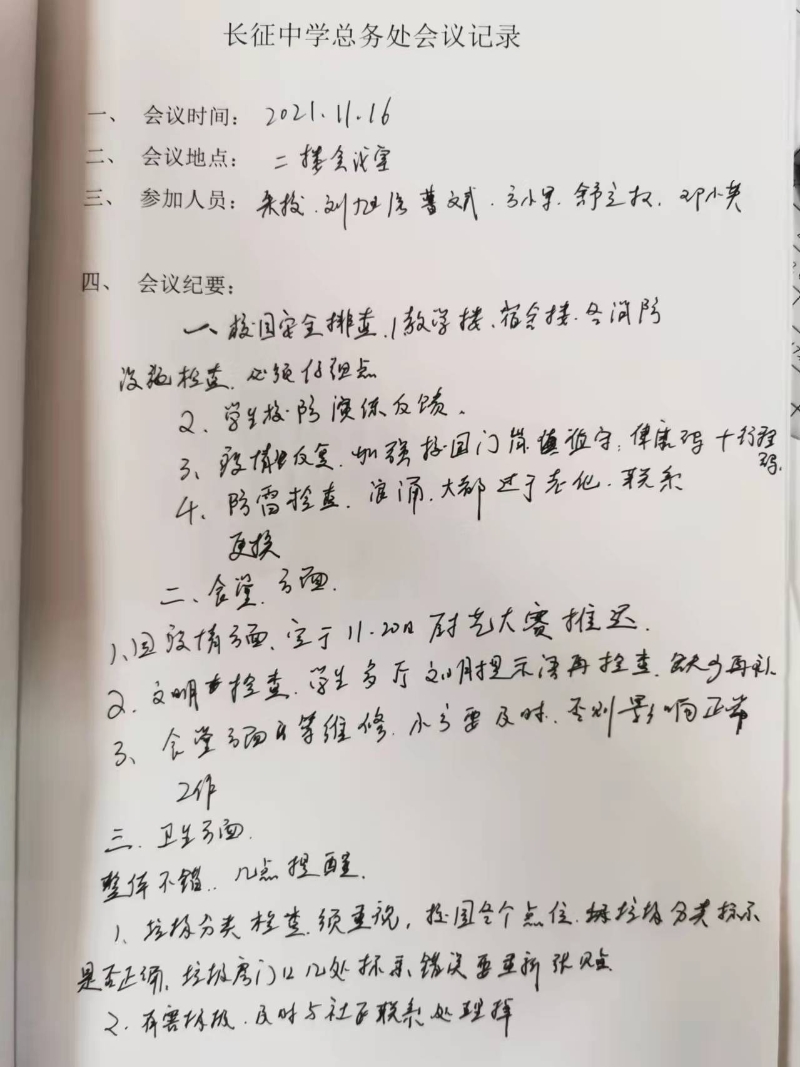 长征中学总务处会议记录
一、 会议时间: 2021.11.16
二、 会议地点: 二楼会议室
三、 参加人员: 朱校.刘旭 曹文斌.方小军.舒立权.邓小英
四、 会议纪要:
一 校园安全排查.1教学楼、宿舍楼.各消防
设施检查.必须仔细点
2、学生校防演练反馈。
3、疫情反复.加强校园门岗值守;健康码十行程
码.
4、防雷检查.浪涌.大都过于老化.联系
更换
二、食堂方面.
1、因疫情方面.定于11.20日厨艺大赛推迟.
2.文明检查.学生餐厅文明提示语再检查.缺少再补.
3、食堂方面等维修.小方要及时.否则影响正常
工作
三.卫生方面.
整体不错..几点提醒.
1、垃圾分类检查.须重视,校园各个点位.垃圾分类标示
是否正确,垃圾房门口几处标示错误要重新张贴
2.有害垃圾.及时与社区联系处理掉